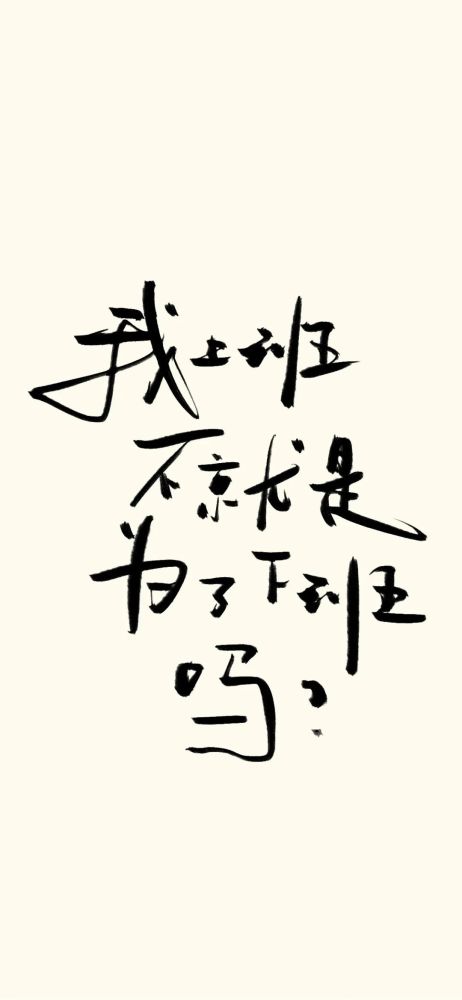 我上班
不就是
为了下班
吗?